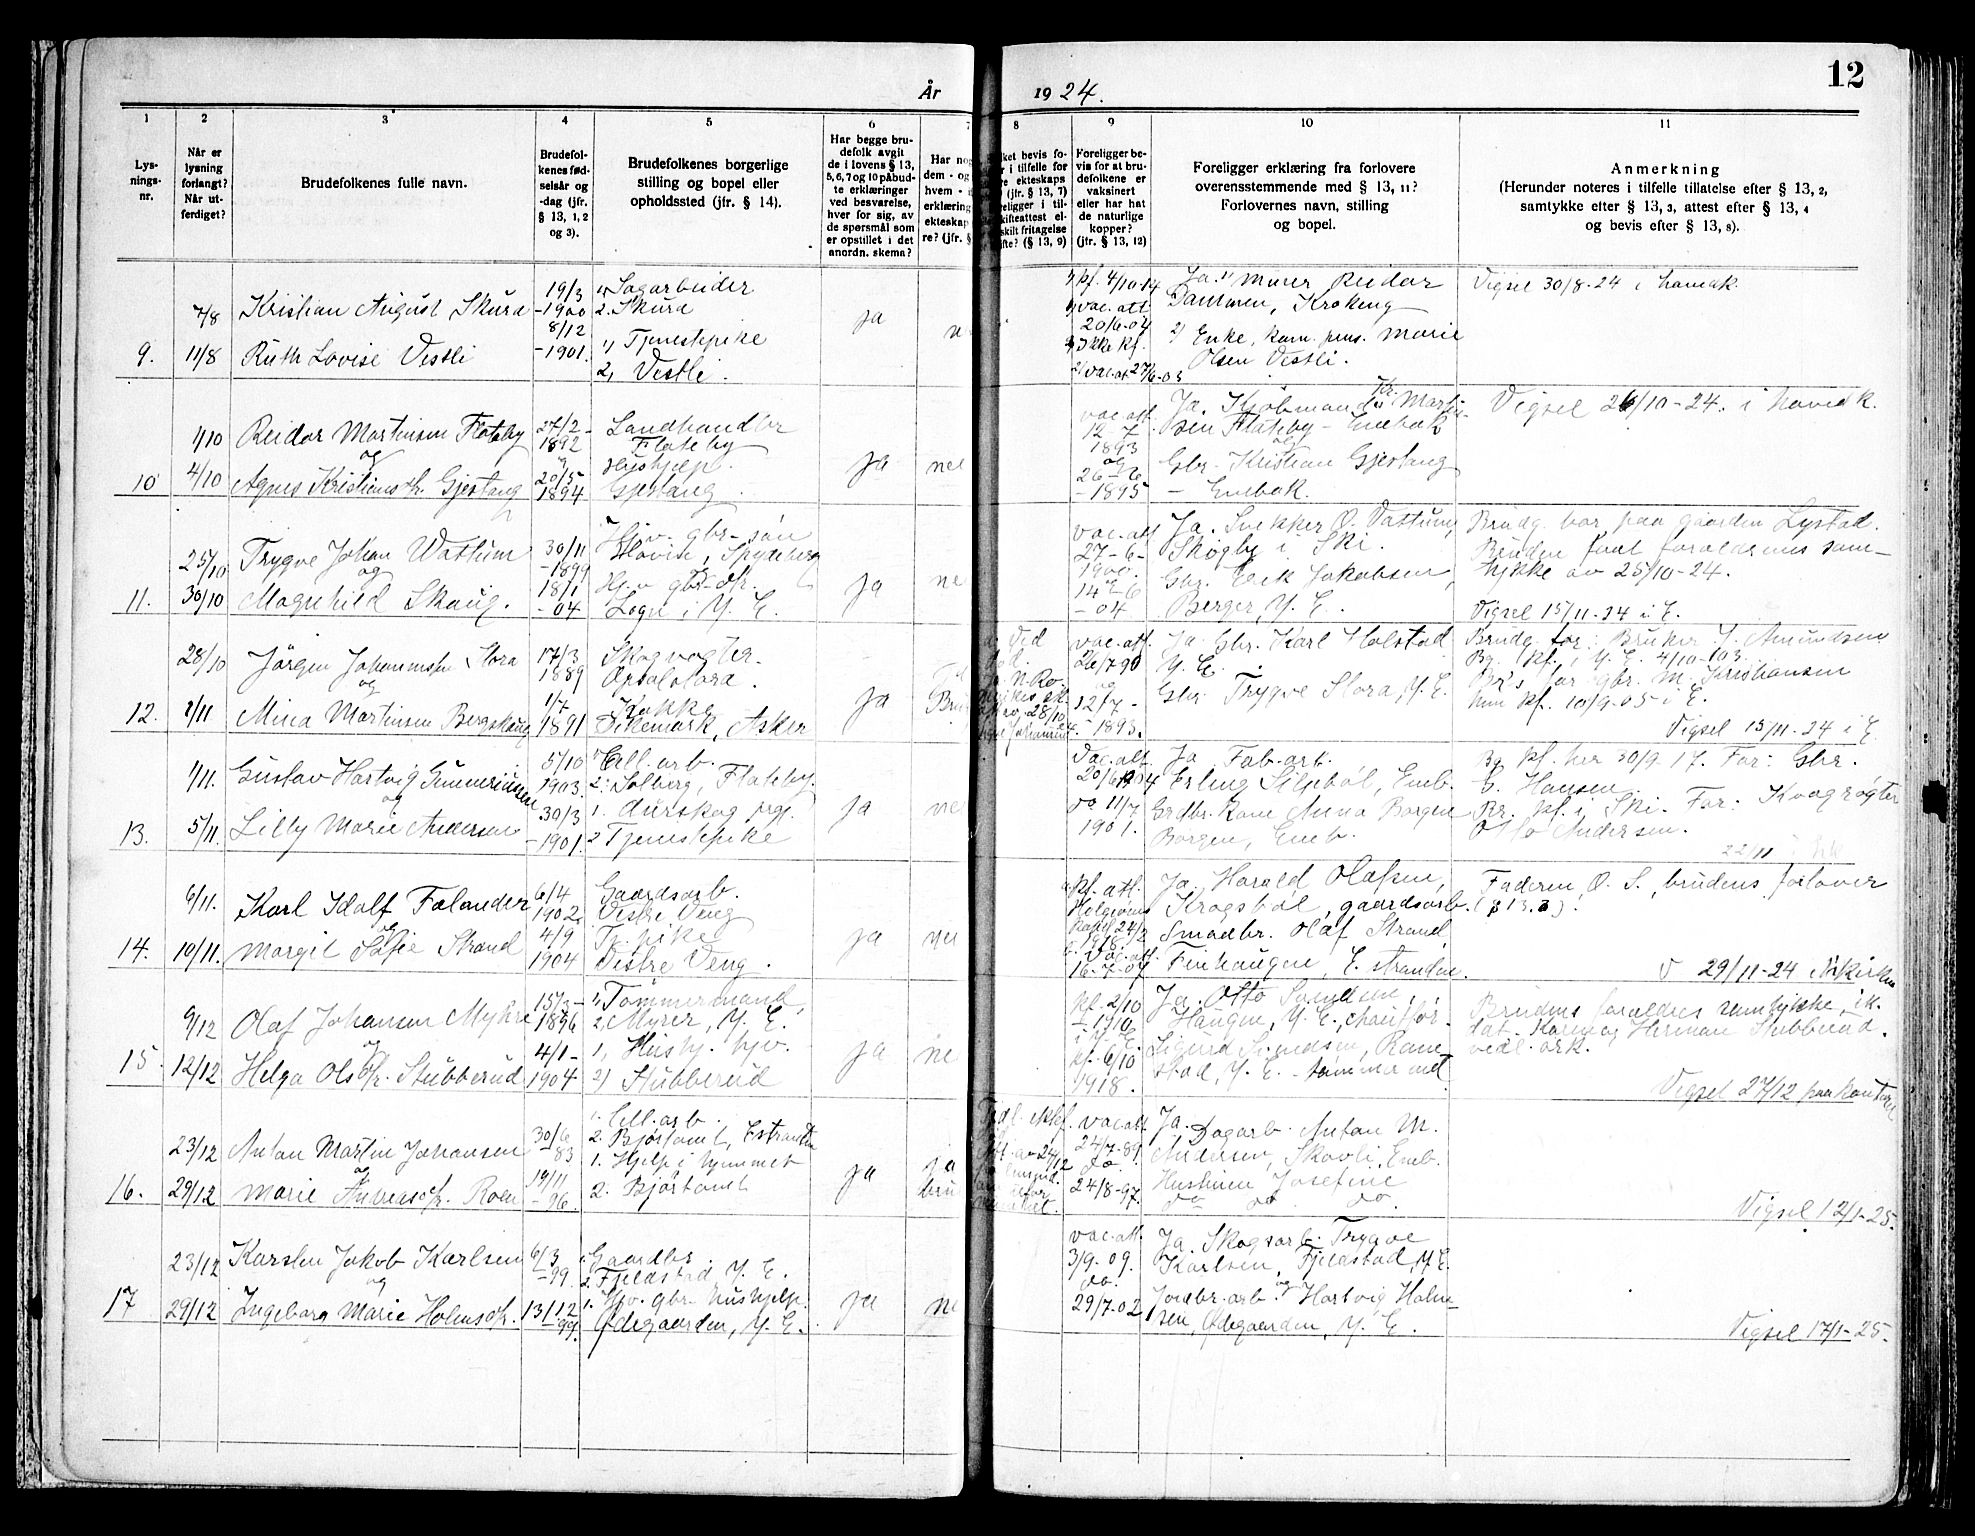 År
19 24.
12
1
2
3
4
5
6
7
8
9
10
11
Lys-
nings-
nr.
Når er
lysning
forlangt?
Når ut-
ferdiget?
Brudefolkenes fulle navn.
Brudefol-
kenes fød-
selsår og
-dag (jfr.
§ 13, 1, 2
og 3).
Brudefolkenes borgerlige
stilling og bopel eller
opholdssted (jfr. § 14).
Har begge bru-
defolk avgit
de i lovens § 13,
5, 6, 7 og 10 påbud-
te erklæringer
ved besvarelse,
hver for sig, av
de spørsmål som
er opstillet i det
anordn. skema?
Har nog
dem - og
hvem -
erklæring
ekteskap
re? (jfr. §
ket bevis fo-
r i tilfelle for
re ekteskaps
(jfr. § 13, 7)
religger i til-
skifteattest el-
skilt fritagelse
fte? (§ 13, 9)
Foreligger be-
vis for at bru-
defolkene er
vaksinert
eller har hat
de naturlige
kopper?
(jfr. § 13, 12)
Foreligger erklæring fra forlovere
overensstemmende med § 13, 11?
Forlovernes navn, stilling
og bopel.
Anmerkning
(Herunder noteres i tilfelle tillatelse efter § 13, 2,
samtykke efter § 13, 3, attest efter § 13, 4
og bevis efter § 13, 8).
9.
7/8
11/8
Kristian August Skura
Ruth Lovise Vestli
19/3
-1900
8/12
-1901.
1) Sagarbeider
2. Skura
1) Tjenestepike
2, Vestli.
ja
kf. 4/10-14
vac. att.
20/6-04
Ikke kf.
Ja. 1) Murer Reidar
2) Enke, kom. pens. Marie
Olsen Vestli.
Vigsel 30/8-24 i
10
1/10
4/10
Reidar Martinsen Flateby
og
Agnes Kristiansdtr. Gjestang
27/2-
1892
og
20/5
1894
Landhandler
Flateby
Gjestang.
ja
nei
vac. att.
12-7
1893
og
26-6
-1895
Ja. Kjøbmand
sen Flateby - Enebak
og
Gbr. Kristian Gjestang
- Enebak.
Vigsel 26/10-24. i
11.
25/10
30/10
Trygve Johan Wattum
og
Magnhild Skaug.
30/11
-1899
18/1
-04
Hjv. gbr-søn
Hovise, Spydeberg
Hj.v gbr-dtr.
i Y. E.
ja
ne
vac. att.
27-6-
1900.
14-6
-04
Ja. Snekker O. Vattum,
Skogby i Ski.
Gbr. Erik Jakobsen,
Berger, Y. E.
Brudg. bor paa gaarden Lystad.
Bruden faat forældrenes sam-
tykke av 25/10-24.
Vigsel 15/11-24 i E.
12.
28/10
1/11
Jörgen Johannessen Stora
og
Minea Martinsen Bergskaug
17/3
1889
1/7
1891
Skogvogter.
Opsalstora.
Kokke
Dikemark, Asker
ja
Bru
vac. att.
26/7 90
og
12/7-
1893.
Ja. Gbr. Karl Holstad
Y. E.
Gbr. Trygve Stora, Y. E.
Brudg. far: Bruker J. Amundsen
Bg. kf. i Y. E. 4/10-03.
Br's far gbr. M. Kristiansen
hun kf. 10/9-05 i E.
Vigsel 15/11-24 i E.
13.
1/11.
5/11.
Gustav Hartvig Gunneriusen
og
Lilly Marie Andersen
5/10
1903.
30/3
-1901.
1) Cell. arb.
2. Solberg, Flateby.
1. Aurskog pgj.
2 Tjenestepike
ja
ne
vac. att.
do 11/7
1901.
Ja Fab-arb.
Erling Siljebøl, Eneb.
Grdbr. kone Anna Borgen
Borgen, Eneb.
Bg. kf. her 30/9-17. Far: Gbr.
C. Hansen
Br. kf. i Ski. Far: Kvægrøgter
Otto Andersen.
22/11
14.
6/11.
10/11.
Karl Idolf Falander
og
Margit Sofie Strand
6/4
1902
4/9
1904
Gaardsarb.
Vestre Veng
Tj. pike
Vestre Veng.
ja
nei
kf. att.
1918.
vac. att.
16-7-07
Ja, Harald Olafsen,
Krogsbøl, gaardsarb.
Smaabr. Olaf Strand
Finhaugen, E. stranden.
Faderen, O. S., brudens forlover
(§ 13.3).
V 29/11-24 i kirken
15.
9/12
12/12
Olaf Johansen Myhre
og
Helga Olsdtr. Stubberud
15/3-
1896
4/1-
1904
1) Tømmermand,
2, Myrer, Y. E.
1, Hushj. hjv.
2) Stubberud
ja
ne
kf. 2/10
-1910
i Y. E.
kf. 6/10
1918.
Ja. Otto Svendsen,
Haugen, Y. E., chauffør.
Sigurd Svendsen, Ram-
stad, Y. E. tømmermd
Brudens forældres samtykke, ik.
dat. Karen og Herman Stubberud.
vedl. ark.
Vigsel 27/12 paa kontoret
16.
23/12
29/12
Anton Martin Johansen
og
Marie Andersdtr. Roen
30/6
-83
19/11
-96.
1. Cell. arb.
2. Bjørtomt, Estranden
1. Hjelp i hjemmet
2. Bjørtomt
ja
ja
bru
vac att
24/7-89
do.
24/8-97.
Ja. Dagarb. Anton M.
Andersen, Skovli, Eneb.
Hustruen Josefine
do do do.
Vigsel 12/1-25.
17
23/12
29/12
Karsten Jakob Karlsen
og
Ingeborg Marie Holmsdtr.
6/3
-99.
13/12
-99.
1. Gaardbr.
2. Fjeldstad, Y. E.
1. Hjv. gbr. hushjelp.
Ødegaarden, Y. E.
ja
ne
vac. att.
3/9-09.
do.
29/7-02
Ja. Skogsarb. Trygve
Karlsen, Fjeldstad, Y. E.
Jordbr. arb. Hartvig Holm-
sen, Ødegaarden, Y. E.
Vigsel 17/1-25.